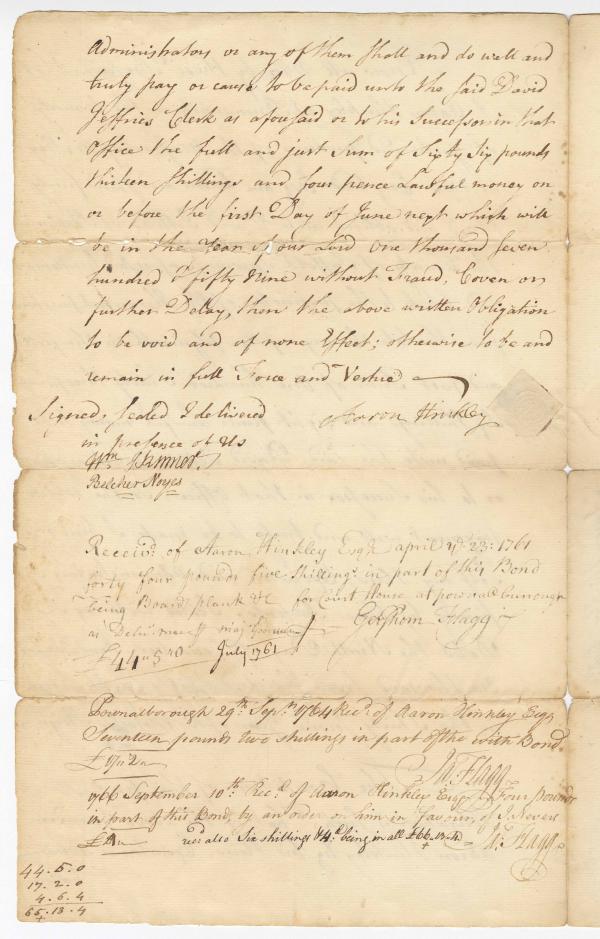 Administrators or any of them shall and do well and
truly pay or cause to be paid unto the said David
Jeffries Clerk as aforesaid or to his Successor in that
Office the full and just Sum of Sixty Six pounds
thirteen shillings and four pence Lawful money on
or before the first Day of June next which will
be in the Year of our Lord One thousand seven
hundred & fifty Nine without Fraud, Coven or
further Delay, then the above written Obligation
to be void and of none Effect; otherwise to be and
remain in full Force and Vertue
Signed, sealed & delivered
Aaron Hinkley
in presence of Us
Wm
Belcher Noyes
Receivd. of Aaron Hinkley Esqr. april ye. 23: 1761
forty four pounds five shillings. in part of this Bond
being Boards plank &c for Court House at pownallburrough
Gershom Flagg
£44 " 5 " 0 July 1761
Pownalborough 29th. Sepr. 1764 Recd. of Aaron Hinkley Esqr
Seventeen pounds two shillings in part of the with Bond.
£17 " 2 "
Js. Flagg
1766 September 10th. Recd. of Aaron Hinkley Esqr Four pounds
in part of this Bond, by an order on him in favour of J. Nevers
£4 " recd also Six shillings & 4d being in all £66.13.4 Js. Flagg
44.5.0
17.2.0
4.6.4
65.13.4